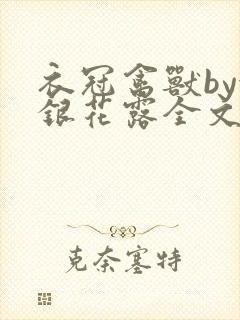 衣冠禽獸by
銀花露全文
克奈塞特